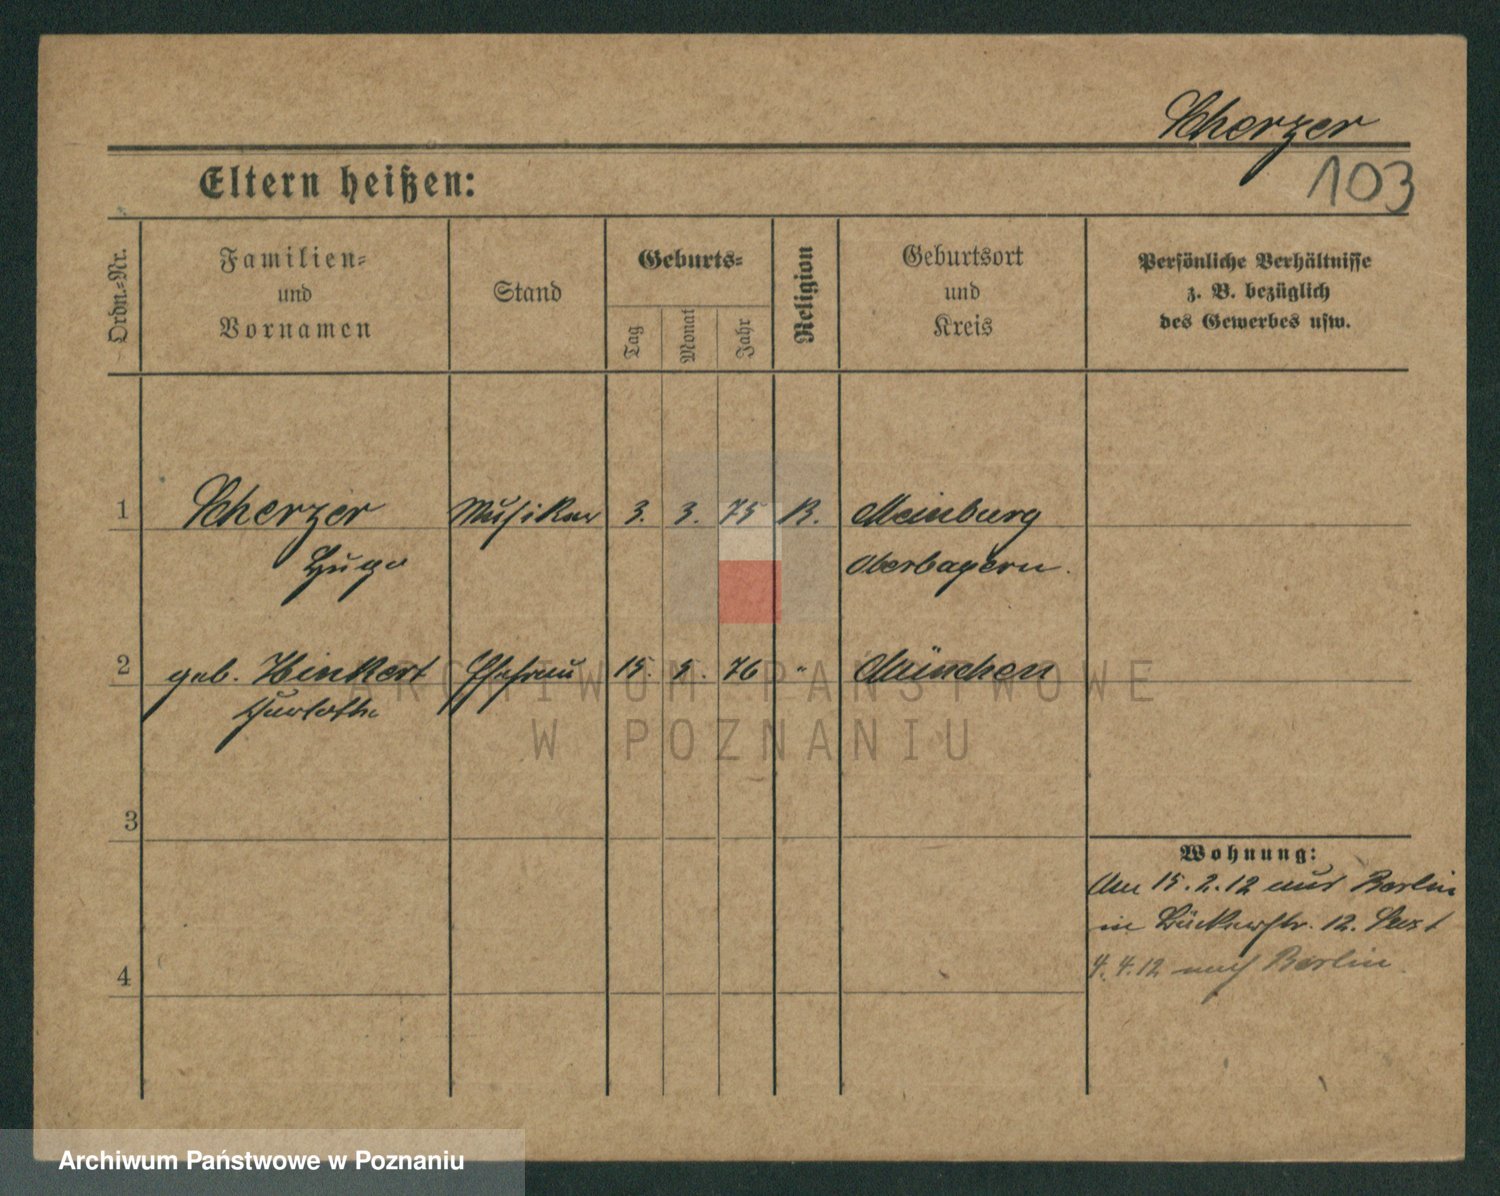 Scherzer
103
Eltern heißen:
Ordn.-Nr.
Familien-
und
Vornamen
Stand
Geburts-
Tag
Monat
Jahr
Religion
Geburtsort
und
Kreis
Persönliche Verhältnisse
z. B. bezüglich
des Gewerbes usw.
1 Scherzer Musiker 3. 3. 75 K. Meinburg
Hugo Oberbayern.
2 geb. Ehefrau 15. 5. 76 " München
3
Wohnung:
Am 15.2.12 aus Berlin
in 12.
4.4.12 nach Berlin
4
ARCHIWUM PAŃSTWOWE
W POZNANIU
Archiwum Państwowe w Poznaniu